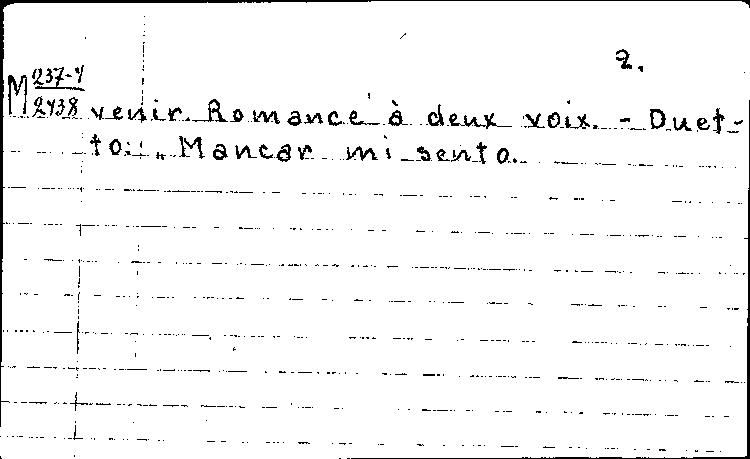 2.
M 237-4
2438
venir. Romance à deux voix. - Duet-
to: „Mancar mi sento.